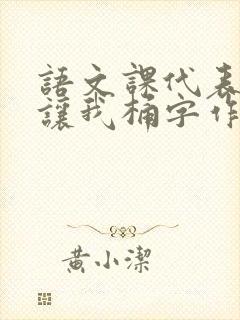 語文課代表
讓我桶字作
黄小潔